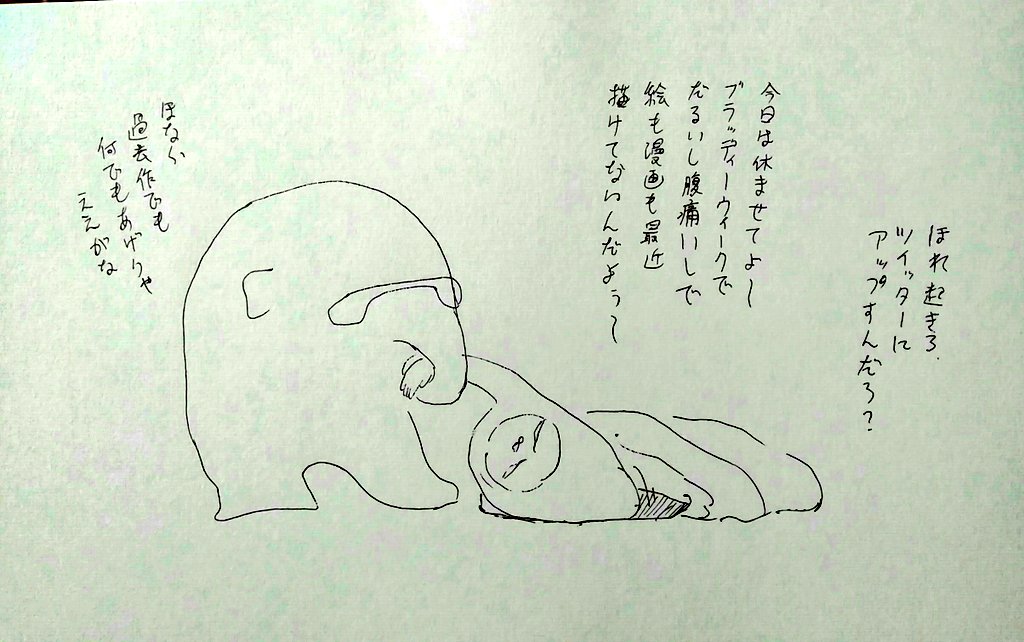 ほれ起きろ
ツイッターに
アップすんだろ?
今日は休ませてよ〜
ブラッディーウィークで
だるいし腹痛いしで
絵も漫画も最近
描けてないんだよぅ〜
ほなら
過去作でも
何でもあげりゃ
ええがな